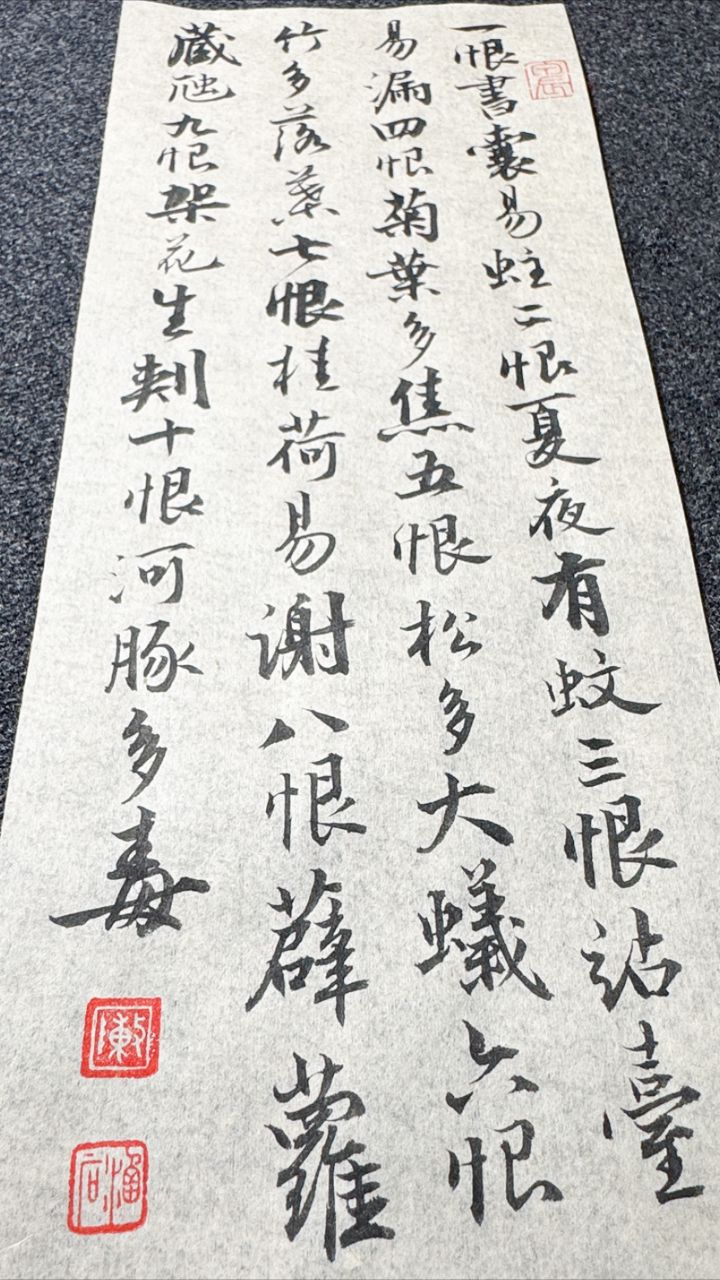 一恨書囊易蛀二恨夏夜有蚊三恨站臺
易漏四恨菊葉多焦五恨松多大蟻六恨
竹多落葉七恨桂荷易谢八恨薜蘿
藏虺九恨架花生刺十恨河豚多毒